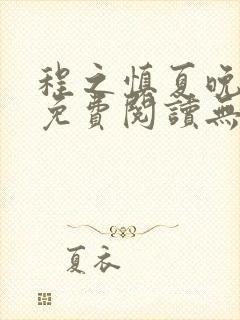 程之慎夏晚
免費閱讀無
夏衣